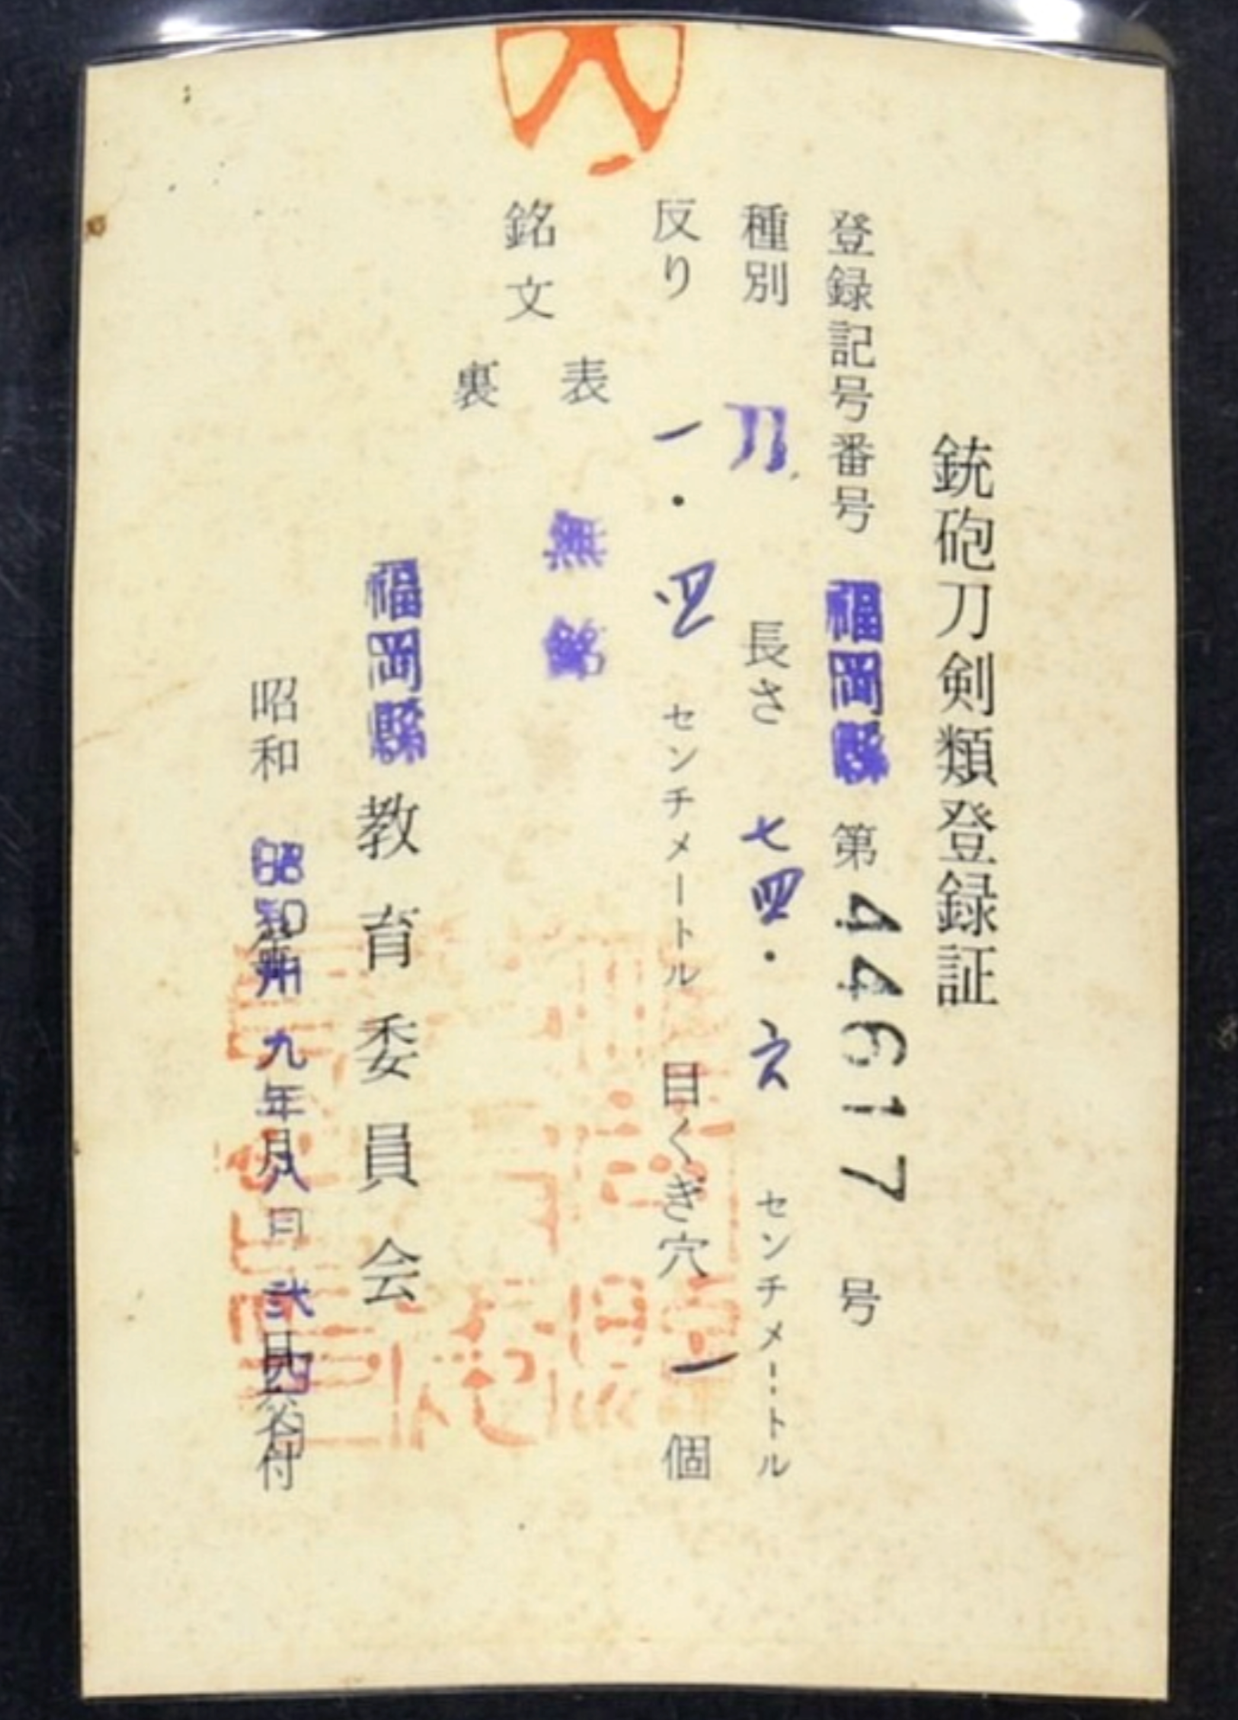 銃砲刀剣類登録証
登録記号番号 福岡縣 第44617号
種別 刀 長さ 七四・六 センチメートル
反り 一・四 センチメートル 目くぎ穴 一 個
銘文 表 無銘
裏
福岡縣教育委員会
昭和 昭和 九年 八 日 弐 四 付